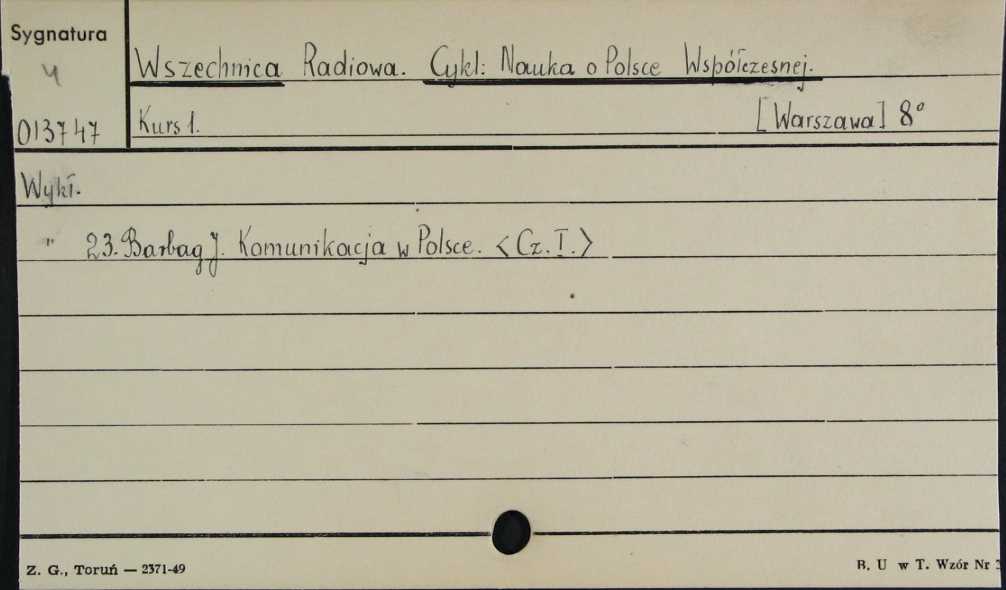 Sygnatura
Wszechnica Radiowa. Cykl: Nauka o Polsce Współczesnej.
013747
Kurs 1. [Warszawa] 8°
Wykł.
" 23. Barbag J. Komunikacja w Polsce. <Cz. I.>
Z. G., Toruń — 2371-49
B. U w T. Wzór Nr